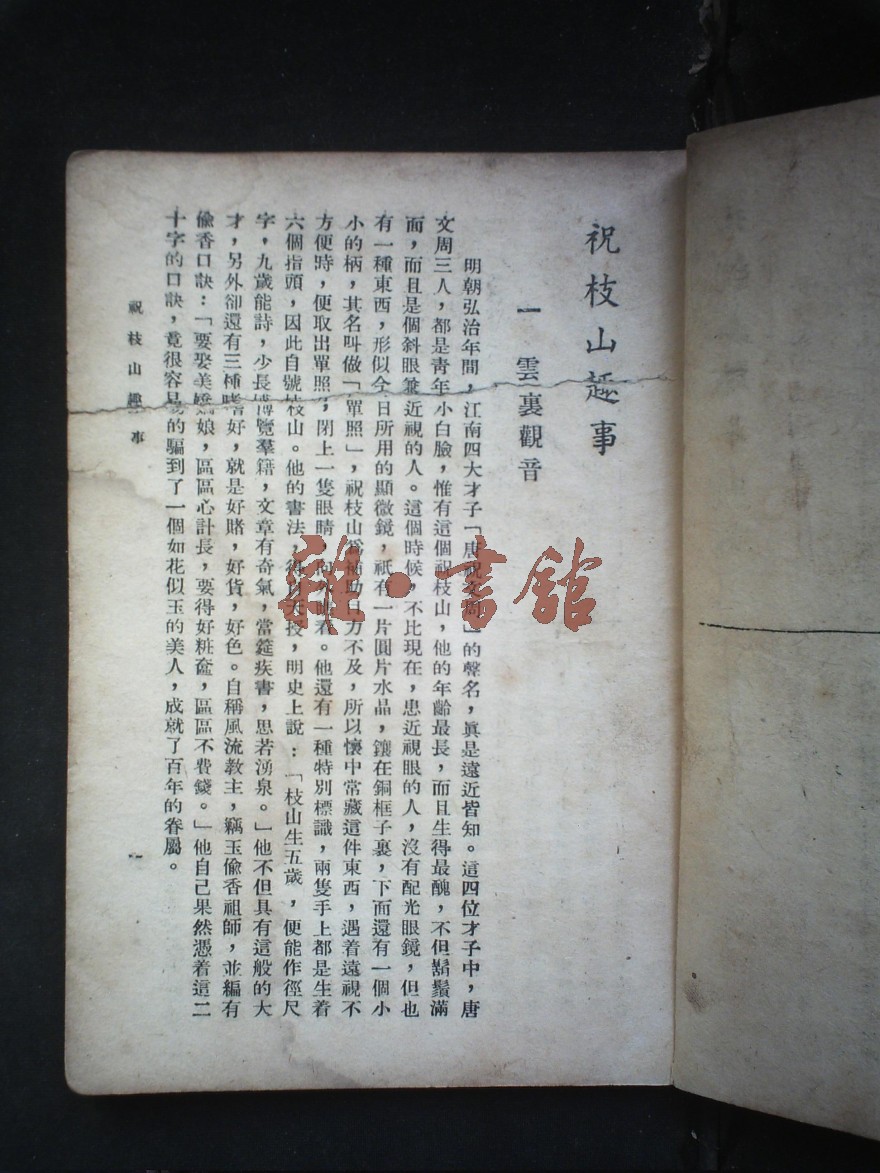 祝枝山趣事
一 雲裏觀音
明朝弘治年間，江南四大才子「唐祝文周」的聲名，眞是遠近皆知。這四位才子中，唐
文周三人，都是青年小白臉，惟有這個祝枝山，他的年齡最長，而且生得最醜，不但鬍鬚滿
面，而且是個斜眼兼近視的人。這個時候，不比現在，患近視眼的人，沒有配光眼鏡，但也
有一種東西，形似今日所用的顯微鏡，祇有一片圓片水晶，鑲在銅框子裏，下面還有一個小
小的柄，其名叫做「單照」，祝枝山爲補助目力不及，所以懷中常藏這件東西，遇着遠視不
方便時，便取出單照，閉上一隻眼睛，向外瞧着。他還有一種特別標識，兩隻手上都是生着
六個指頭，因此自號枝山。他的書法，得自天授，明史上說：「枝山生五歲，便能作徑尺
字，九歲能詩，少長博覽羣籍，文章有奇氣，當筵疾書，思若湧泉。」他不但具有這般的大
才，另外卻還有三種嗜好，就是好賭，好貨，好色。自稱風流教主，竊玉偸香祖師，並編有
偸香口訣：「要娶美嬌娘，區區心計長，要得好粧奩，區區不費錢。」他自己果然憑着這二
十字的口訣，竟很容易的騙到了一個如花似玉的美人，成就了百年的眷屬。
祝枝山趣事
一
雜·書館